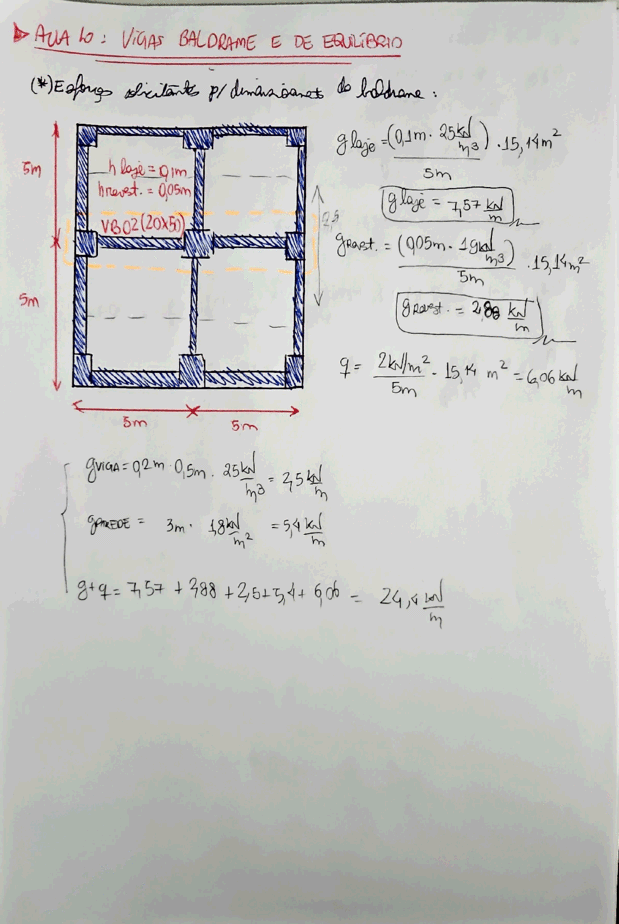 AULA 10: VIGAS BALDRAME E DE EQUILÍBRIO
(*) Esforços solicitantes p/ dimensionamento do baldrame:
5m
h laje = 0,1m
hrevest. = 0,05m
VB02 (20x50)
5m
5m
5m
2,5
g laje = (0,1m . 25kN/m³) . 15,14m²
5m
g laje = 7,57 kN/m
grevest. = (0,05m . 19kN/m³) . 15,14m²
5m
grevest. = 2,88 kN/m
q = 2kN/m² . 15,14 m² = 6,06 kN/m
5m
gVIGA = 0,2m . 0,5m . 25kN/m³ = 2,5 kN/m
gPAREDE = 3m . 1,8kN/m² = 5,4 kN/m
g+q = 7,57 + 2,88 + 2,5 + 5,4 + 6,06 = 24,4 kN/m